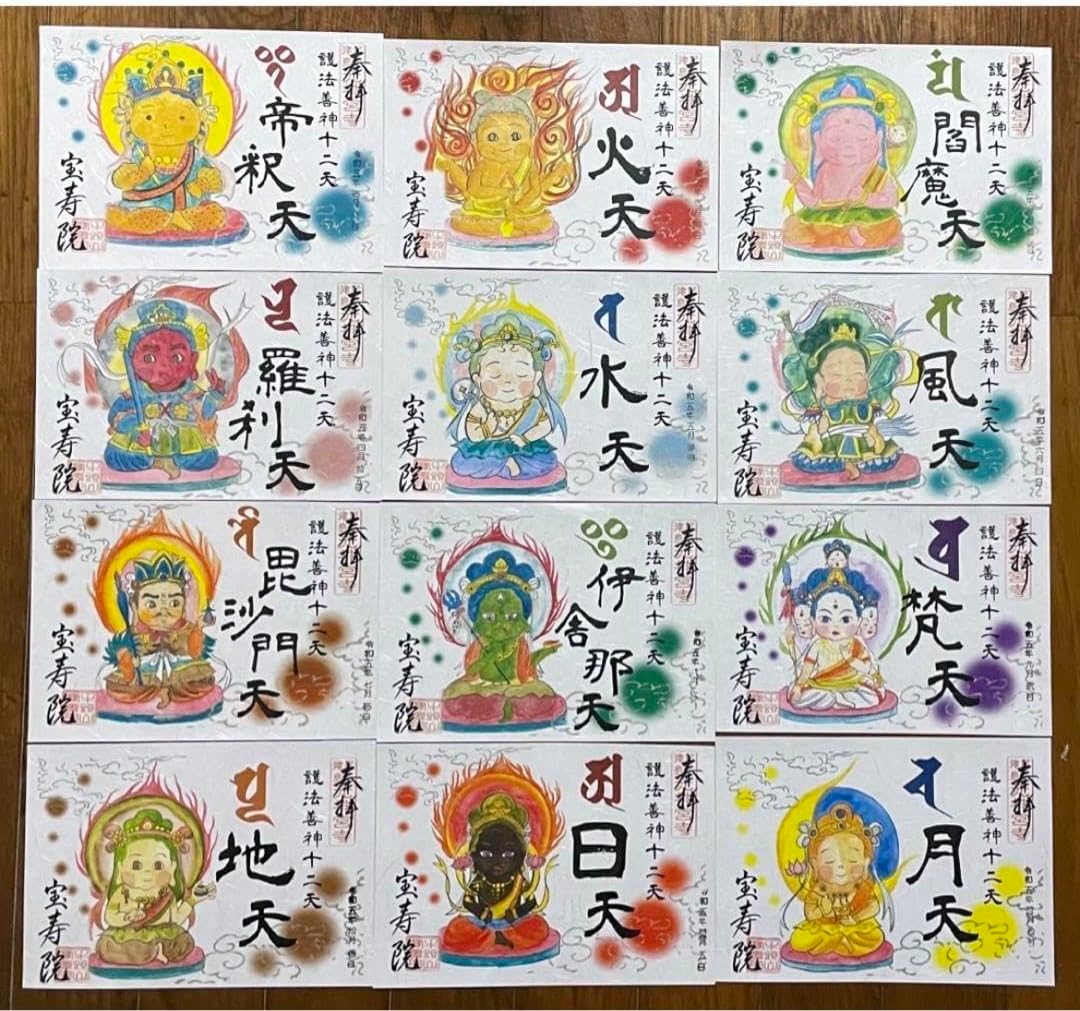 奉拝
護法善神十二天
帝釈天
宝寿院
奉拝
護法善神十二天
火天
宝寿院
奉拝
護法善神十二天
閻魔天
宝寿院
奉拝
護法善神十二天
羅刹天
宝寿院
奉拝
護法善神十二天
水天
宝寿院
奉拝
護法善神十二天
風天
宝寿院
奉拝
護法善神十二天
毘沙門天
宝寿院
奉拝
護法善神十二天
伊舎那天
宝寿院
奉拝
護法善神十二天
梵天
宝寿院
奉拝
護法善神十二天
地天
宝寿院
奉拝
護法善神十二天
日天
宝寿院
奉拝
護法善神十二天
月天
宝寿院